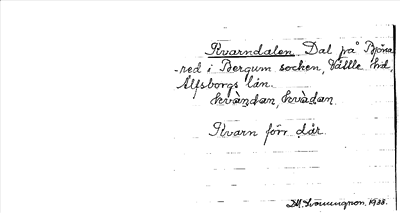 Kvarndalen. Dal på Björsa
-red i Bergum socken, Vättle hd,
Älfsborgs län.
kvàṇdan, kvàdan.
Kvarn förr där.
1938.